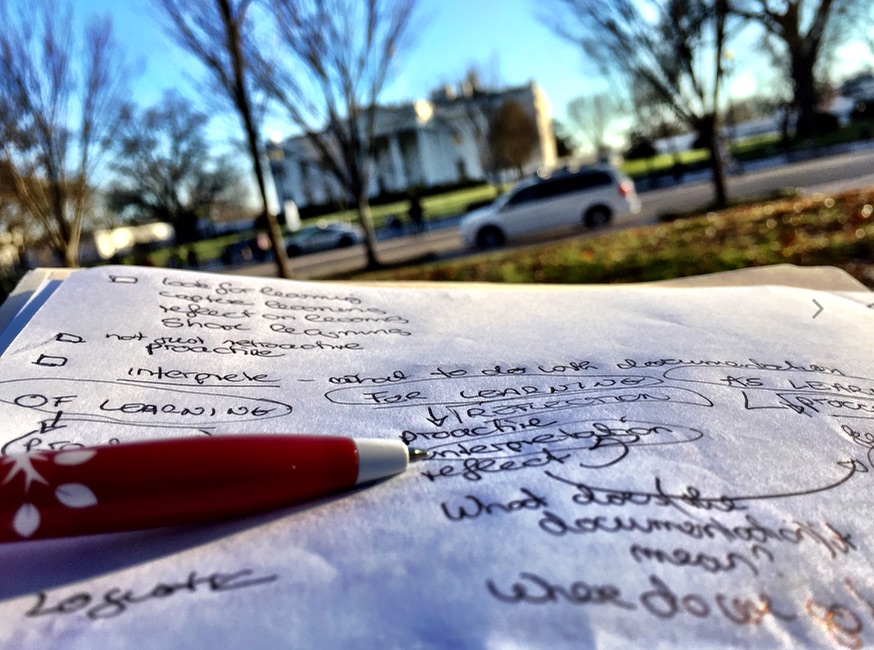 Look for learning
capture learning
reflect on learning
Share learning
not just retroactive
proactive
interprete - what to do with documentation
OF LEARNING
FOR LEARNING
AS LEARN
REFLECTION
proactive
interpretation
reflect
What does the
documentation
mean?
Where do we go